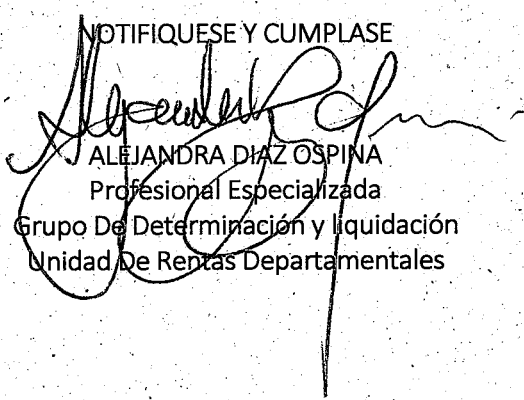 NOTIFIQUESE Y CUMPLASE
ALEJANDRA DIAZ OSPINA
Profesional Especializada
Grupo De Determinación y liquidación
Unidad De Rentas Departamentales